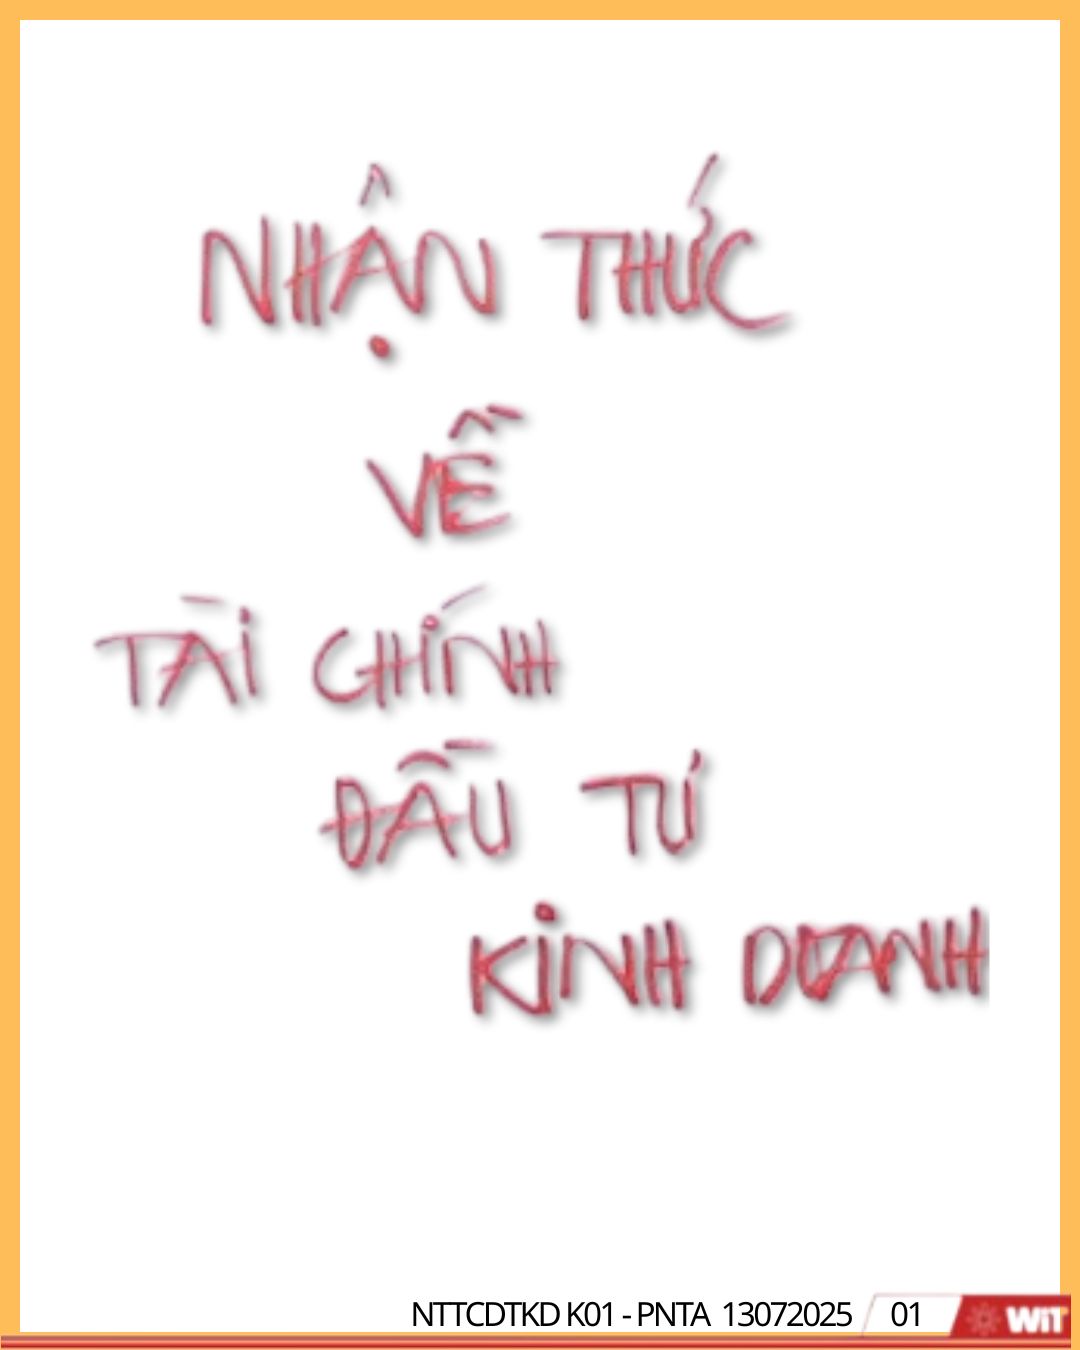 NHẬN THỨC
VỀ
TÀI CHÍNH
ĐẦU TƯ
KINH DOANH
NTTCDTKD K01 - PNTA 13072025 01 WiT